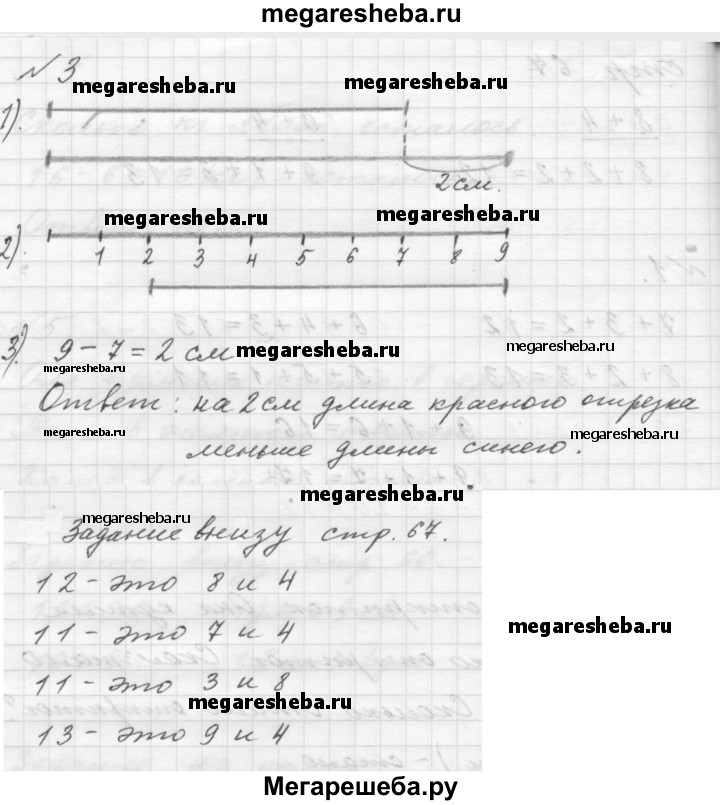 megaresheba.ru
№ 3
megaresheba.ru
megaresheba.ru
1).
2 см.
megaresheba.ru
megaresheba.ru
2).
1 2 3 4 5 6 7 8 9
3). 9 - 7 = 2 см
megaresheba.ru
megaresheba.ru
megaresheba.ru
Ответ: на 2 см длина красного отрезка
megaresheba.ru
megaresheba.ru
меньше длины синего.
megaresheba.ru
megaresheba.ru
Задание внизу стр. 67.
12 - это 8 и 4
11 - это 7 и 4
megaresheba.ru
11 - это 3 и 8
megaresheba.ru
13 - это 9 и 4
Мегарешеба.ру